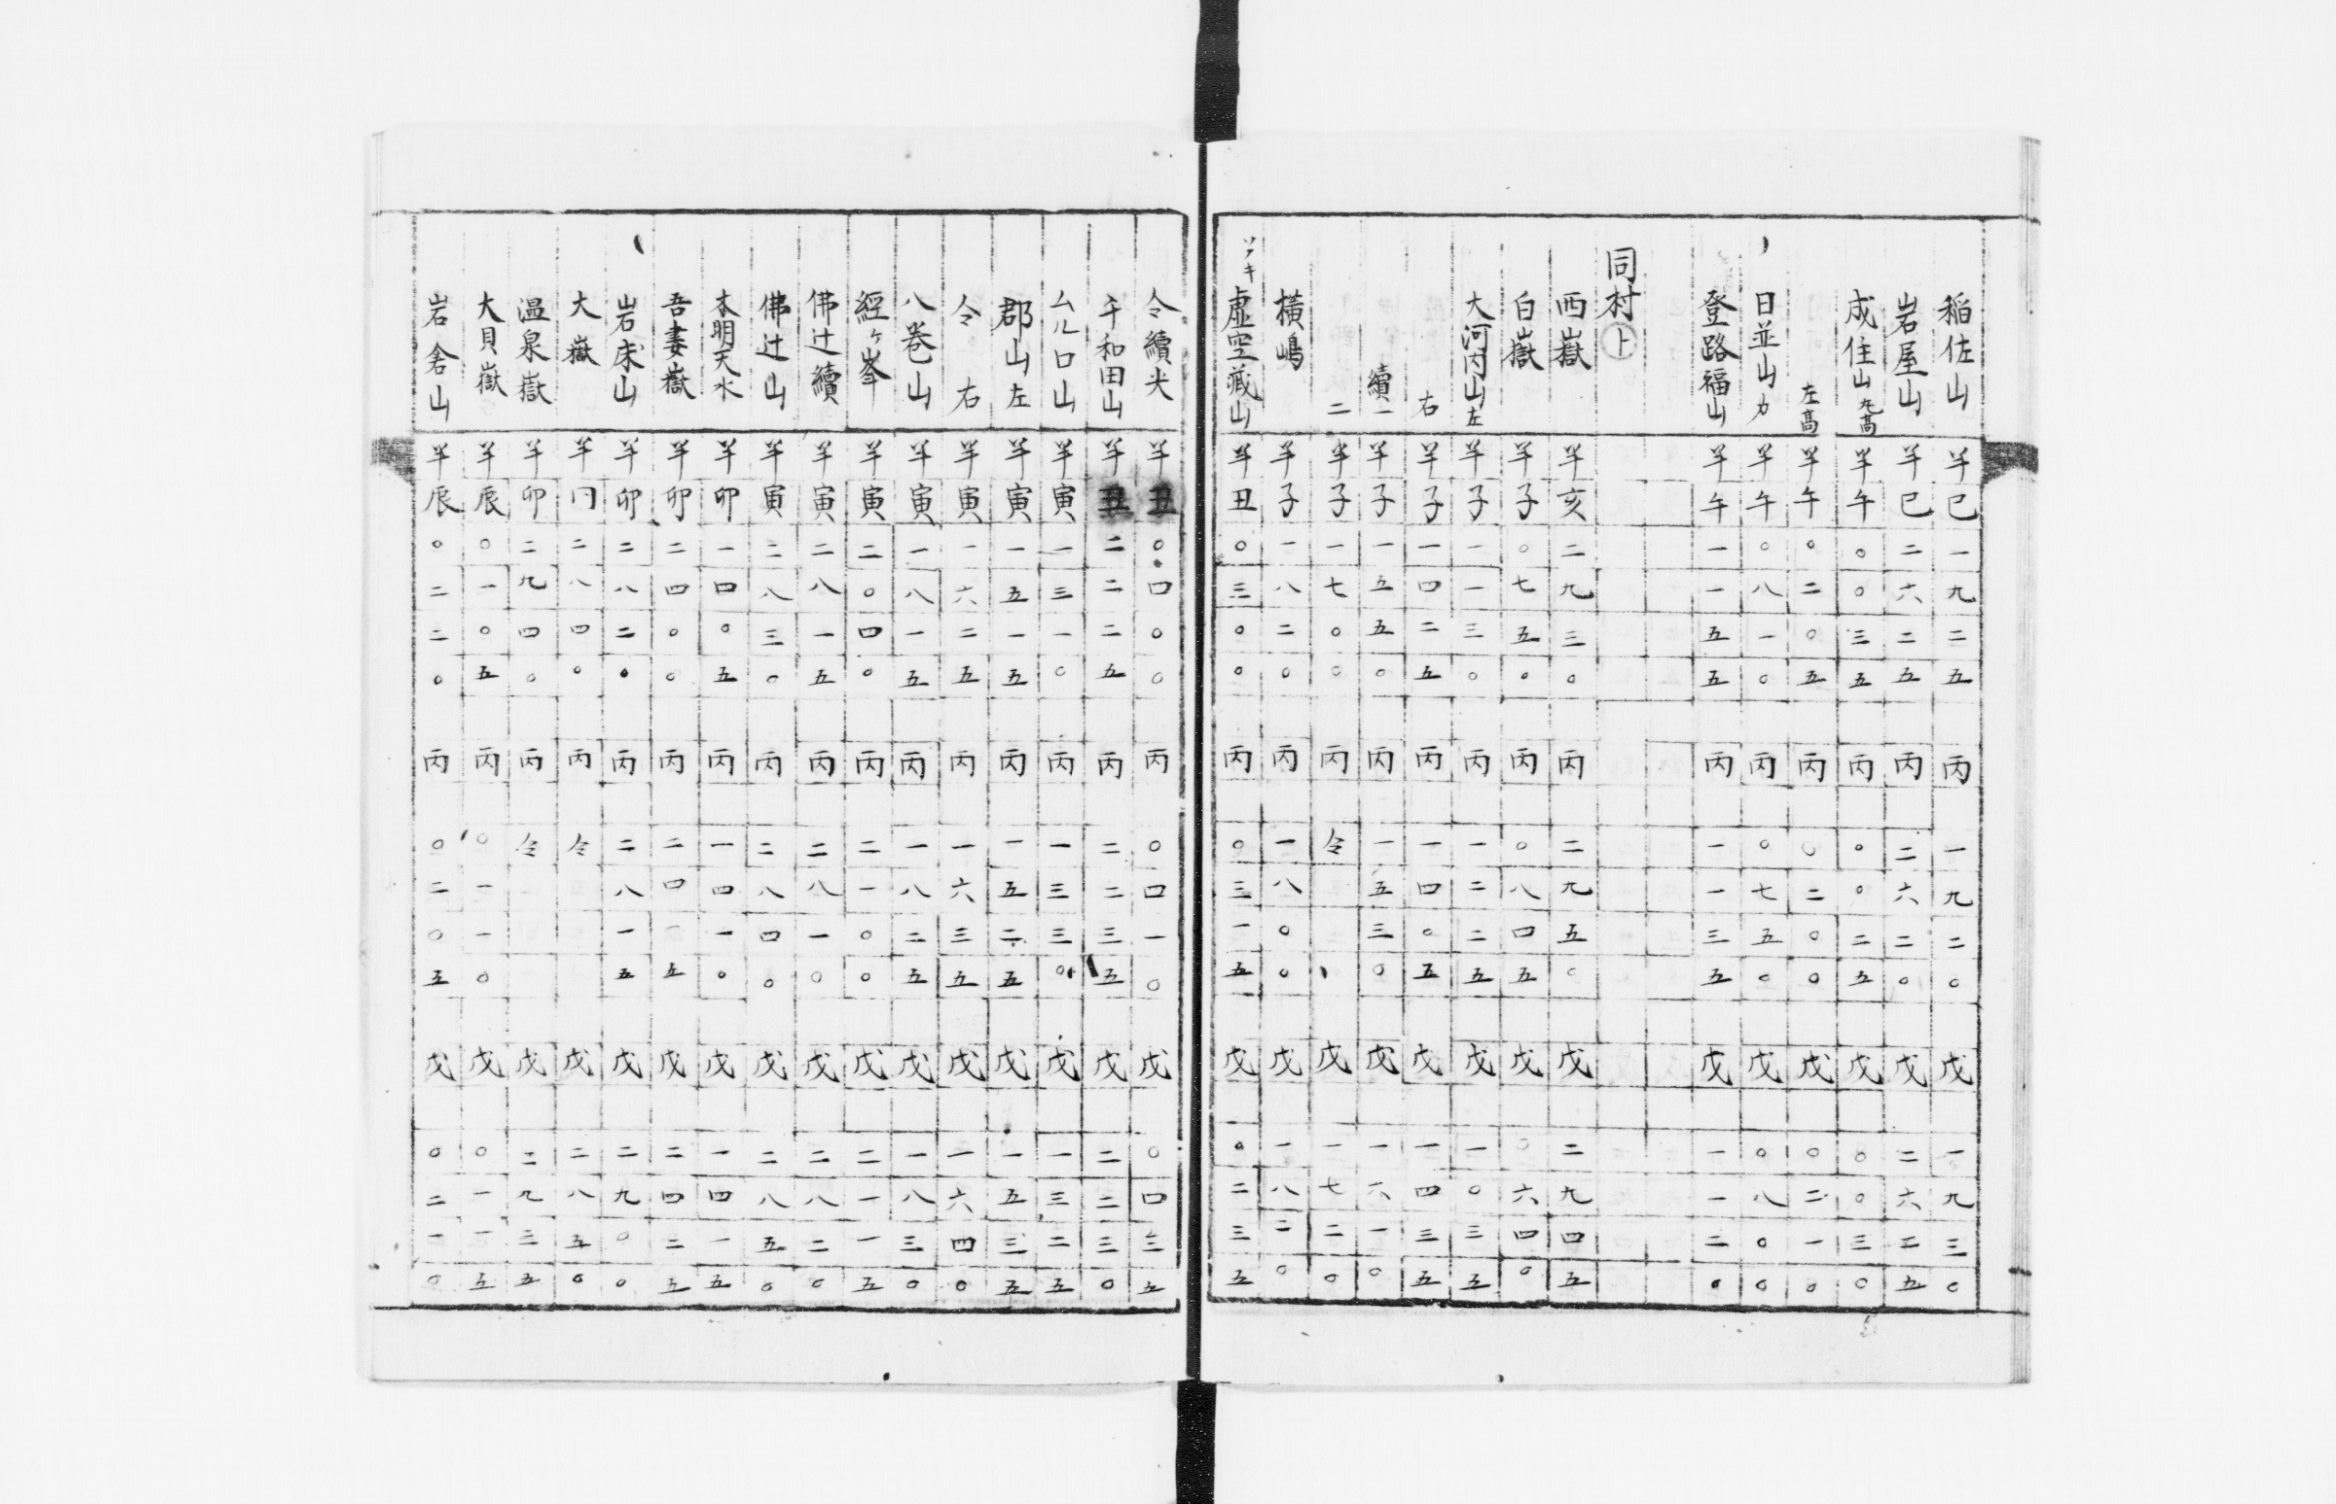 稲佐山 羊巳一九二五 丙一九二〇 戊一九三〇
岩屋山 羊巳二六二五 丙二六二〇 戊二六二五
成住山 九高 羊午〇〇三五 丙〇〇二五 戊〇〇三〇
左高 羊午〇二〇五 丙〇二〇〇 戊〇二一〇
日並山カ 羊午〇八一〇 丙〇七五〇 戊〇八〇〇
登路福山 羊午一一五五 丙一一三五 戊一一二〇
同村上
西嶽 羊亥二九三〇 丙二九五〇 戊二九四五
白嶽 羊子〇七五〇 丙〇八四五 戊〇六四〇
大河内山左 羊子一一三〇 丙一二二五 戊一〇三五
右 羊子一四二五 丙一四〇五 戊一四三五
續一 羊子一五五〇 丙一五三〇 戊一六一〇
二 羊子一七〇〇 丙仝 戊一七二〇
横嶋 羊子一八二〇 丙一八〇〇 戊一八二〇
ソノキ 虚空蔵山 羊丑〇三〇〇 丙〇三一五 戊〇二三五
仝續尖 羊丑〇四〇〇 丙〇四一〇 戊〇四三五
千和田山 羊丑二二二五 丙二二三五 戊二二三〇
ムルロ山 羊寅一三一〇 丙一三三〇 戊一三二五
郡山左 羊寅一五一五 丙一五二五 戊一五三五
仝 右 羊寅一六二五 丙一六三五 戊一六四〇
八巻山 羊寅一八一五 丙一八二五 戊一八三〇
經ヶ峯 羊寅二〇四〇 丙二一〇〇 戊二一一五
佛辻續 羊寅二八一五 丙二八一〇 戊二八二〇
佛辻山 羊寅二八三〇 丙二八四〇 戊二八五〇
本明天水 羊卯一四〇五 丙一四一〇 戊一四一五
吾妻嶽 羊卯二四〇〇 丙二四〇五 戊二四二五
岩床山 羊卯二八二〇 丙二八一五 戊二九〇〇
大嶽 羊〃二八四〇 丙仝 戊二八五〇
温泉嶽 羊卯二九四〇 丙仝 戊二九三五
大貝嶽 羊辰〇一〇五 丙〇一一〇 戊〇一一五
岩舍山 羊辰〇二二〇 丙〇二〇五 戊〇二一〇